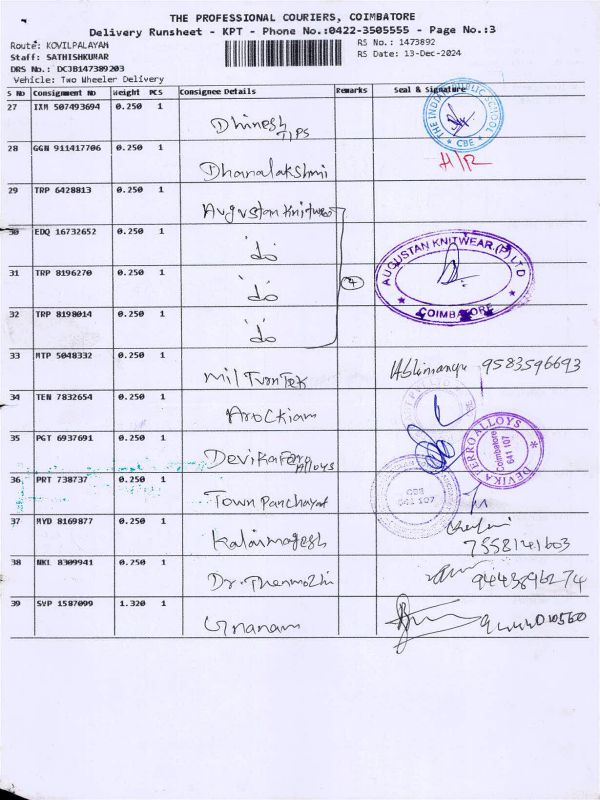 THE PROFESSIONAL COURIERS, COIMBATORE
Delivery Runsheet - KPT - Phone No.:0422-3505555 - Page No.:3
Route: KOVILPALAYAM
RS No.: 1473892
Staff: SATHISHKUMAR
RS Date: 13-Dec-2024
DRS No.: DCJB147389203
Vehicle: Two Wheeler Delivery
S No Consignment No Weight PCS Consignee Details Remarks Seal & Signature
27 IXM 507493694 0.250 1
Dhinesh
TIPS
CBE
28 GGN 911417706 0.250 1
H/R
Dhanalakshmi
29 TRP 6428813 0.250 1
Augustan Knitwear
30 EDQ 16732652 0.250 1
do
AUGUSTAN KNITWEAR (P) LTD
COIMBATORE
31 TRP 8196270 0.250 1
do
4
32 TRP 8198014 0.250 1
do
33 MTP 5048332 0.250 1
Mil Turn Tek
Abhimanyu 9583596693
34 TEN 7832654 0.250 1
Arockiam
35 PGT 6937691 0.250 1
Devika Ferro
Alloys
DEVIKA FERRO ALLOYS
Coimbatore
641 107
36 PRT 738737 0.250 1
Town Panchayat
CBE
641 107
37 MYD 8169877 0.250 1
Kalaimagesh
38 NKL 8309941 0.250 1
Dr. Thenmozhi
39 SVP 1587099 1.320 1
Gnanam